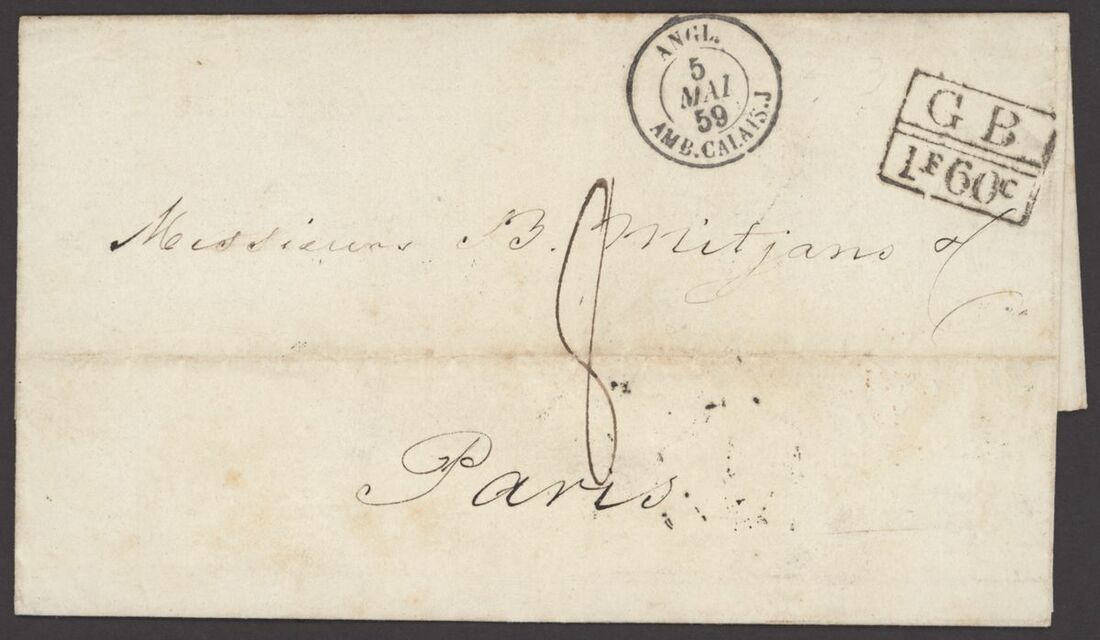 ANGL.
5
MAI
59
AMB. CALAIS. J
G B
1F60C
Messieurs B. Mitjans &
8
Paris.